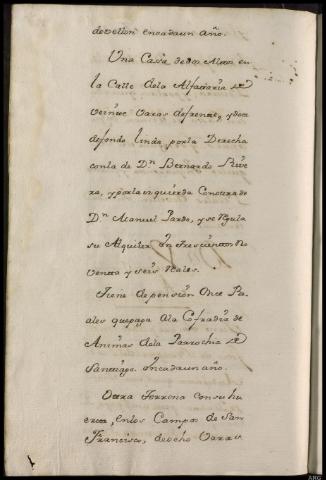 de vellon en cada un año.
Una Cassa de dos Altos en
la Calle de la Alfareria de
veinte varas de frente, y doce
de fondo linda por la Derecha
con la de Dn Bernardo Rive
ro, y por la izquierda con otra de
Dn Manuel Pardo, y se regula
su Alquiler en trescientos no
venta y seis Reales.
Tiene de pension Once Rea
ales que paga a la Cofradia de
Animas de la Parrochia de
Santiago. en cada un año.
Otra Terrena con su hu
erta, en los Campos de San
Francisco, de ocho Varas
ARG